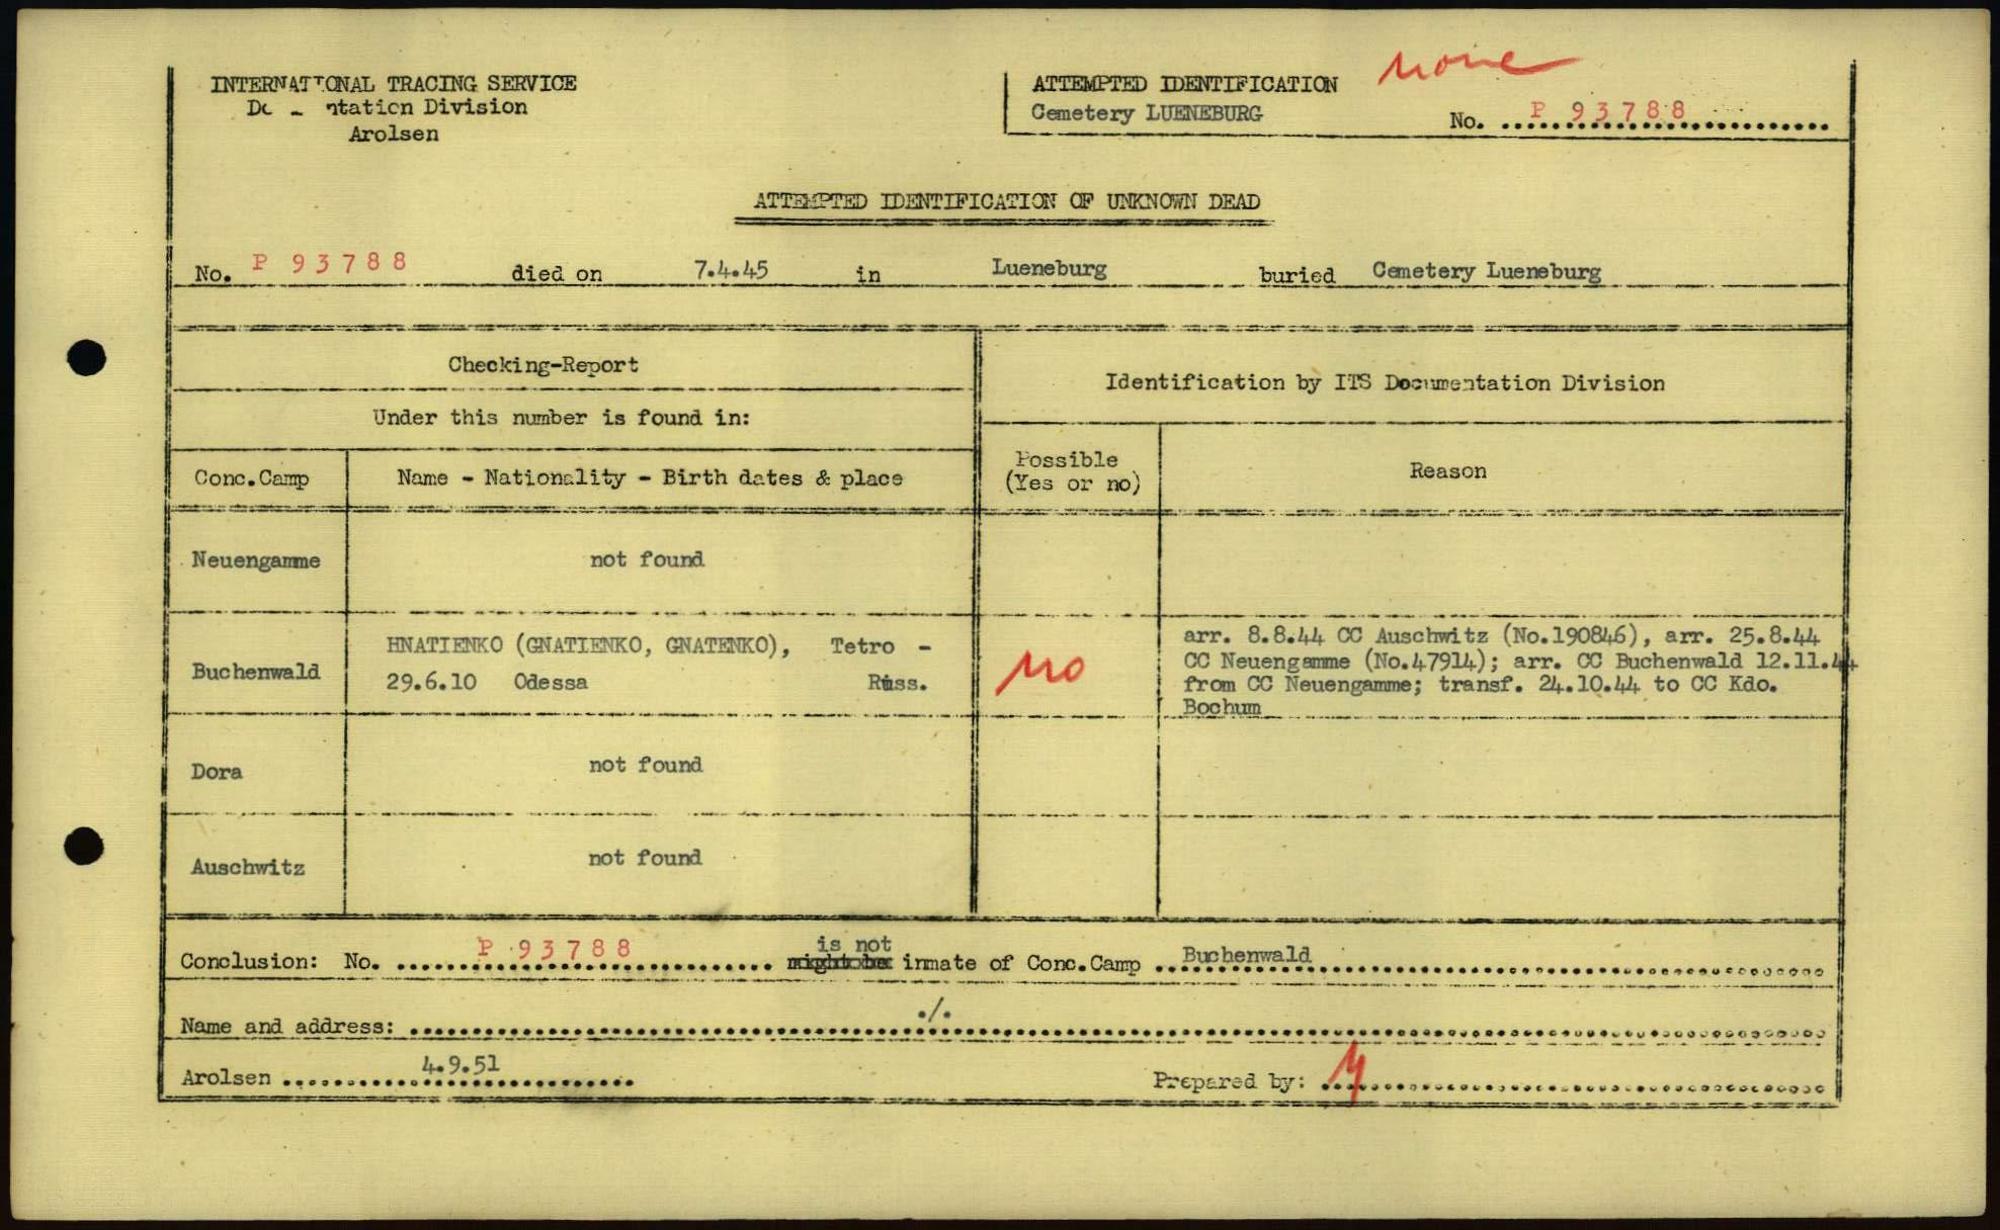 none
INTERNATIONAL TRACING SERVICE
ntation Division
Arolsen
ATTEMPTED IDENTIFICATION
Cemetery LUENEBURG
No. P 93788
ATTEMPTED IDENTIFICATION OF UNKNOWN DEAD
No. P 93788 died on 7.4.45 in Lueneburg buried Cemetery Lueneburg
Checking-Report
Identification by ITS Documentation Division
Under this number is found in:
Conc.Camp
Name - Nationality - Birth dates & place
Possible
(Yes or no)
Reason
Neuengamme
not found
Buchenwald
HNATIENKO (GNATIENKO, GNATENKO), Tetro -
29.6.10 Odessa Russ.
no
arr. 8.8.44 CC Auschwitz (No.190846), arr. 25.8.44
CC Neuengamme (No.47914); arr. CC Buchenwald 12.11.44
from CC Neuengamme; transf. 24.10.44 to CC Kdo.
Bochum
Dora
not found
Auschwitz
not found
Conclusion: No. P 93788 is not inmate of Conc.Camp Buchenwald
Name and address: ./.
Arolsen 4.9.51
Prepared by: